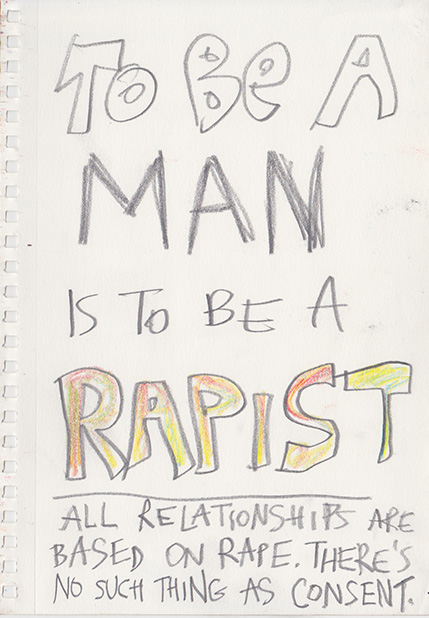 To Be A
MAN
IS To BE A
RAPIST
ALL RELATIONSHIPS ARE
BASED ON RAPE. THERE'S
NO SUCH THING AS CONSENT.